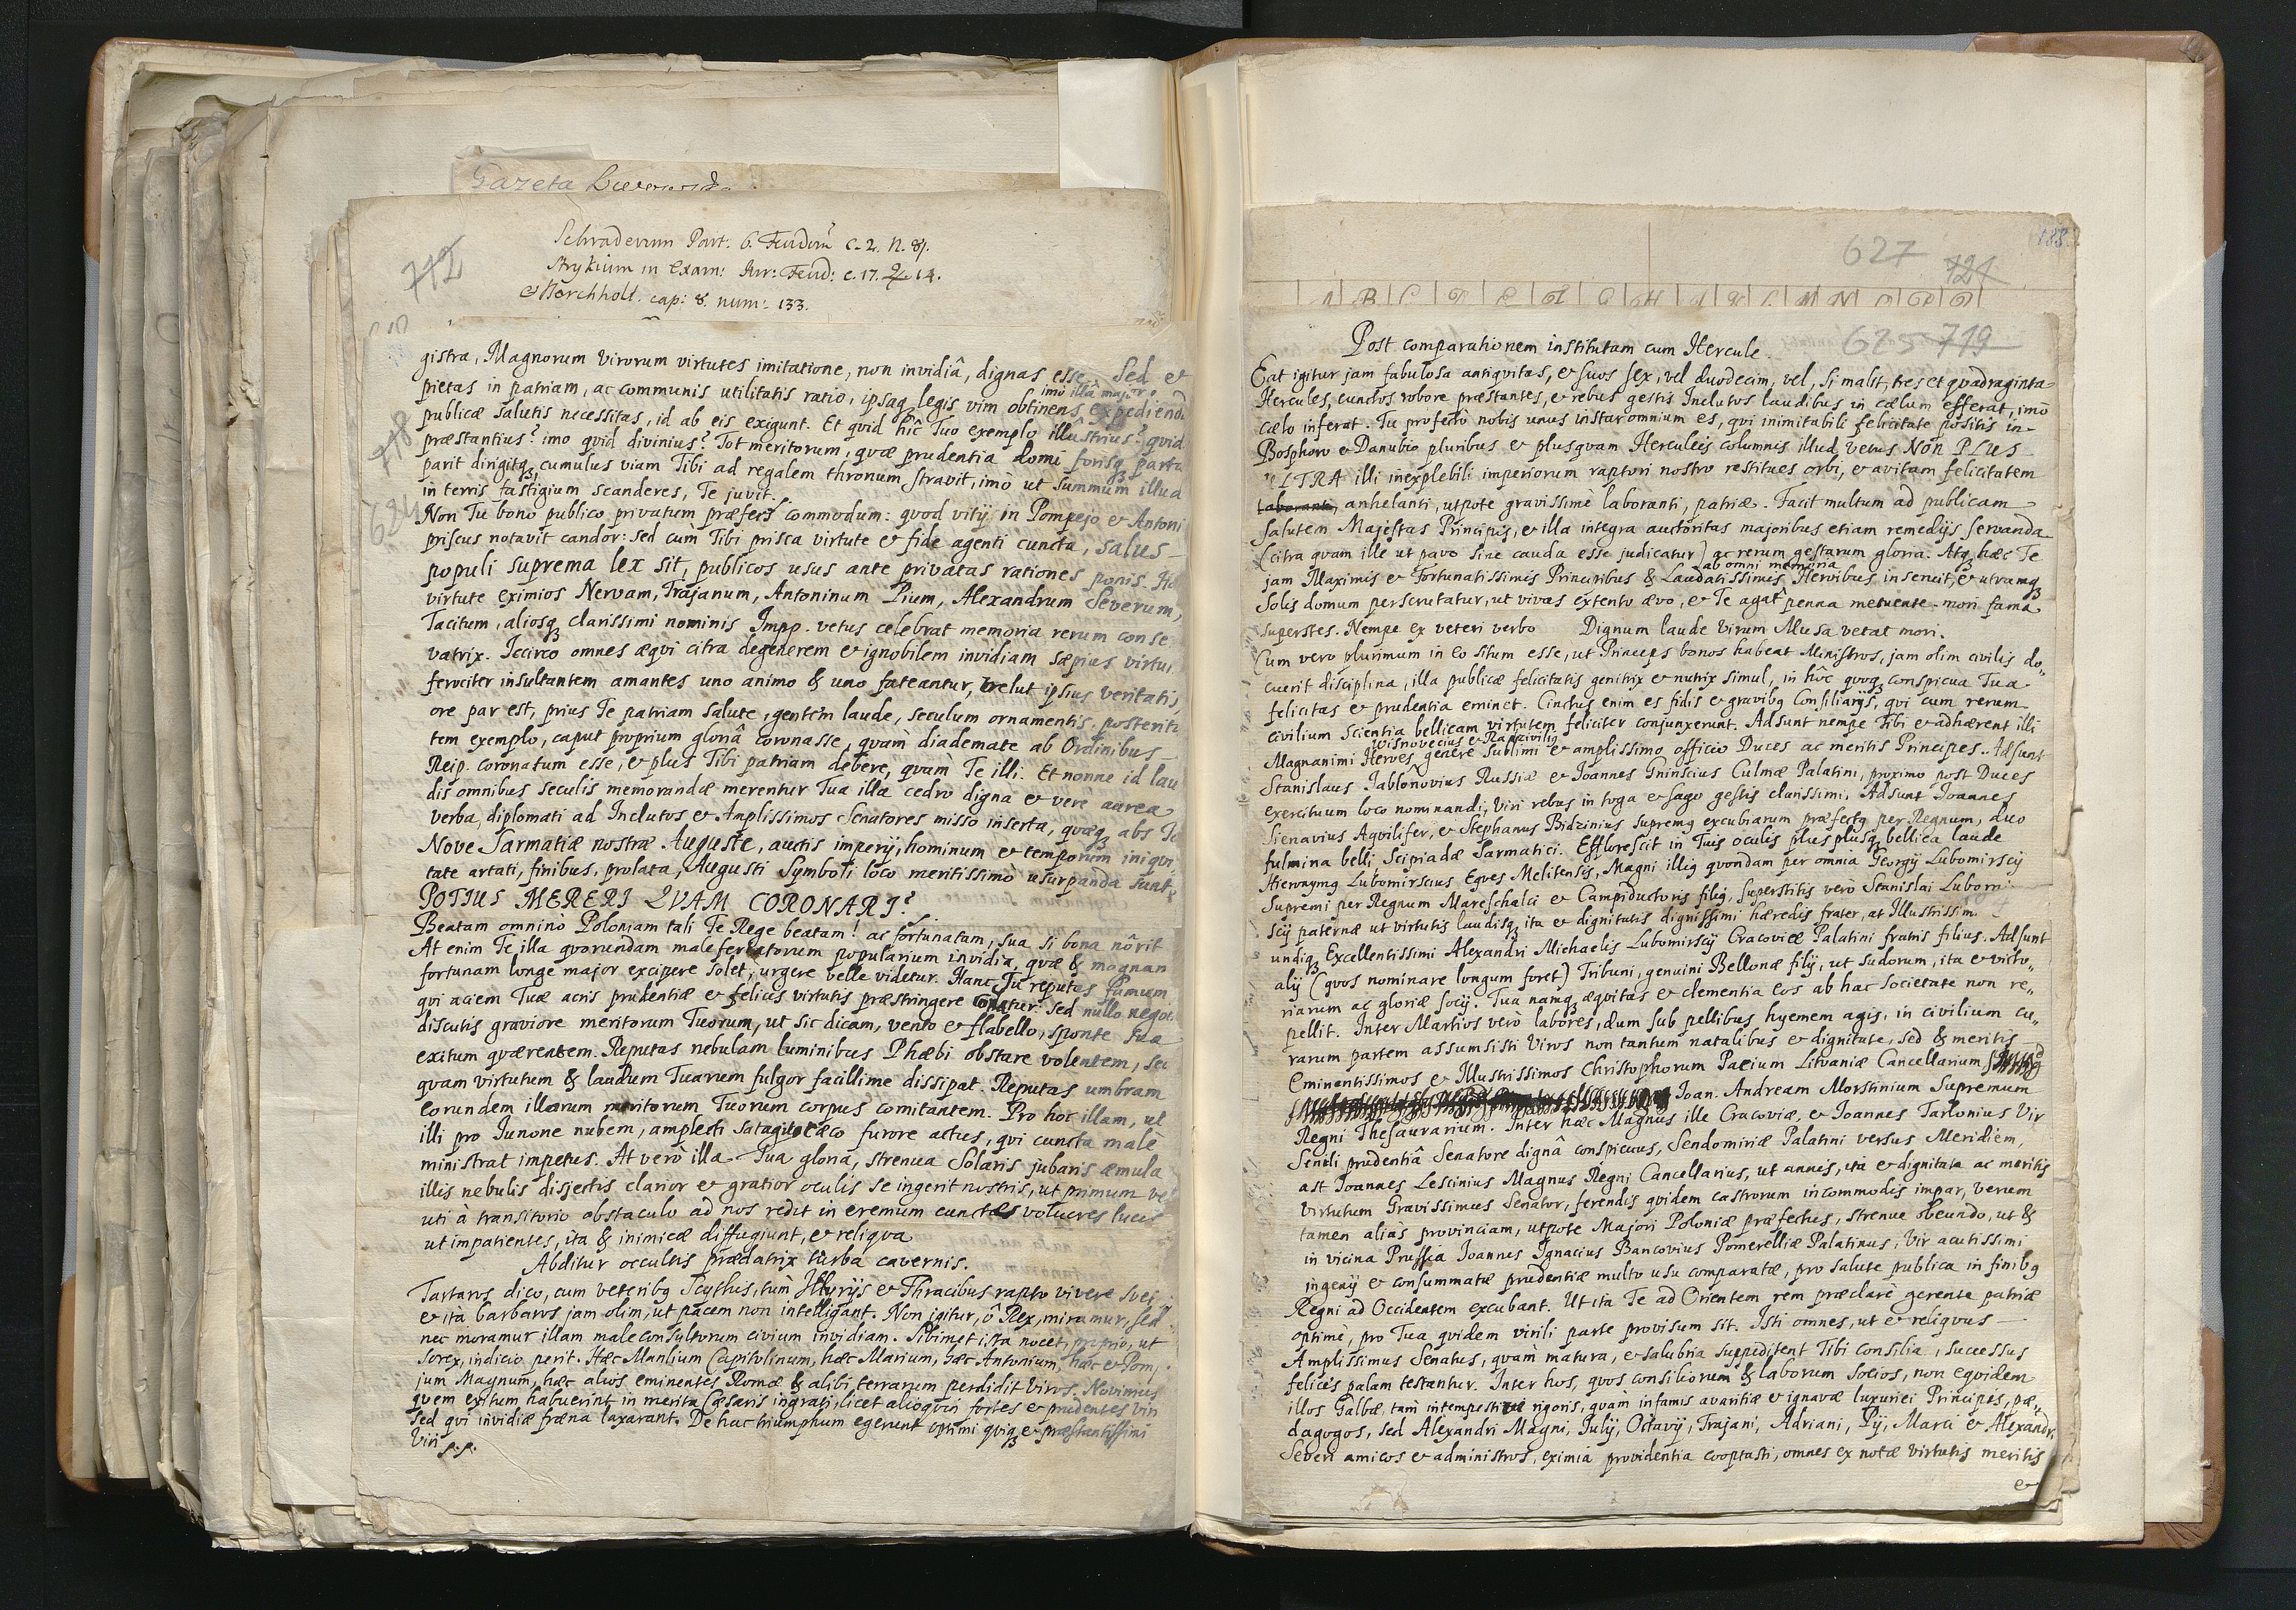 Gazeta
Schraderum Part: 6. Feudorũ c. 2. n. 81.
Strykium in Exam: Iur: Feud: c. 17. 2. 14.
& Horchholt. cap: 8. num: 133.
712
718
624
gistra, Magnorum Virorum virtutes imitatione, non invidiâ, dignas esse. Sed &
pietas in patriam, ac communis utilitatis ratio, ipsaq; legis vim obtinens imò illâ major
publicæ salutis necessitas, id ab eis exigunt. Et quid hîc Tuo exemplo illustrius? quid
præstantius? imo quid divinius? Tot meritorum, quæ prudentia domi forisq; parta
parit dirigitq; cumulus viam Tibi ad regalem thronum stravit, imò ut summum illud
in terris fastigium scanderes, Te juvit.
Non Tu bono publico privatum præfers commodum: quod vitij in Pompejo & Antoni
priscus notavit candor: sed cùm Tibi prisca virtute & fide agenti cuncta, salus
populi suprema lex sit, publicos usus ante privatas rationes ponis.
virtute eximios Nervam, Trajanum, Antoninum Pium, Alexandrum Severum,
Tacitum, aliosq; clarissimi nominis Impp. vetus celebrat memoria rerum conse
vatrix. Iccirco omnes æqvi citra degenerem & ignobilem invidiam sæpius virtu
ferociter insultantem amantes uno animo & uno fateantur, velut ipsius veritatis
ore par est, prius Te patriam salute, gentem laude, seculum ornamentis, posterita
tem exemplo, caput proprium gloriâ coronasse, quàm diademate ab Ordinibus
Reip. coronatum esse, & plus Tibi patriam debere, quàm Te illi. Et nonne id lau
dis omnibus seculis memorandæ merentur Tua illa cedro digna & vere aurea
verba, diplomati ad Inclutos & Amplissimos Senatores misso inserta, quæq; abs Te
Nove Sarmatiæ nostræ Auguste, auctis imperij, hominum & temporum iniqui
tate artati, finibus, prolata, Augusti Symboli loco meritissimò usurpanda sunt,
POTIUS MERERI QVAM CORONARI?
Beatam omninò Poloniam tali Te Rege beatam! ac fortunatam, sua si bona nôrit
At enim Te illa quorundam male feriatorum popularium invidia, quæ & magnam
fortunam longe major excipere solet, urgere velle videtur. Hanc Tu reputas fumum
qui aciem Tuæ acris prudentiæ & felicis virtutis præstringere conatur: sed nullo negot.
discutis graviore meritorum Tuorum, ut sic dicam, vento & flabello, sponte sua
exitum quærentem. Reputas nebulam luminibus Phæbi obstare volentem, sed
quam virtutum & laudum Tuarum fulgor facillime dissipat. Reputas umbram
eorundem illorum meritorum Tuorum corpus comitantem. Pro hoc illam, ut
illi pro Iunone nubem, amplecti satagit cæco furore actus, qui cuncta malè
ministrat impetus. At verò illa Tua gloria, strenua Solaris jubaris æmula
illis nebulis disjectis clarior & gratior oculis se ingerit nostris, ut primum ve
uti à transitorio obstaculo ad nos redit in eremum cunctæ volucres lucis
ut impatientes, ita & inimicæ diffugiunt, & reliqua
Abditur occultis prædatrix turba cavernis.
Tartaros dico, cum veteribq Scythis, tùm Illyrijs & Thracibus rapto vivere svet
& ità barbaros jam olim, ut pacem non intelligant. Non igitur, ô Rex, miramur, sed
nec moramur illam male consultorum civium invidiam. Sibimet ista nocet, proprio, ut
sorex, indicio perit. Hæc Manlium Capitolinum, hæc Marium, hæc Antonium, hæc & Pom
jum Magnum, hæc alios eminentes Romæ & alibi terrarum perdidit viros. Novimus
quem exitum habuerint in merita Cæsaris ingrati, licet alioqvin fortes & prudentes viri
sed qui invidiæ fræna laxarant. De hac triumphum egerunt optimi quiq; & præstantissimi
Viri
p. p.
188
627
721
A B C D E F G H I K L M N O P Q
625 719
Post comparationem institutam cum Hercule.
Eat igitur jam fabulosa antiqvitas, & suos sex, vel duodecim, vel, si malit, tres et quadraginta
Hercules, cunctos robore præstantes, & rebus gestis Inclutos laudibus in cælum efferat, imò
cælo inferat. Tu profectò nobis unus instar omnium es, qui inimitabili felicitate positis in
Bosphoro & Danubio pluribus & plusquam Herculeis columnis illud vetus NON PLUS
VLTRA illi inexplebili imperiorum raptori nostro restitues orbi, & avitam felicitatem
laboranti, anhelanti, utpote gravissimè laboranti, patriæ. Facit multum ad publicam
salutem Majestas Principis, & illa integra auctoritas majoribus etiam remedijs servanda
(citra quam ille ut pavo sine cauda esse judicatur) ac rerum gestarum gloria. Atq; hæc Te
ab omni memoria
jam Maximis & Fortunatissimis Principibus & Laudatissimis Heroibus inseruit, & utramq;
Solis domum perscrutatur, ut vivas extento ævo, & Te agat penna metuente mori fama
superstes. Nempe ex veteri verbo Dignum laude Virum Musa vetat mori.
Cum vero plurimum in eo situm esse, ut Princeps bonos habeat Ministros, jam olim civilis do„
cuerit disciplina, illa publicæ felicitatis genitrix & nutrix simul, in hôc quoq; conspicua Tua
felicitas & prudentia eminet. Cinctus enim es fidis & gravibq Consiliarijs, qui cum rerum
civilium scientia bellicam virtutem feliciter conjunxerunt. Adsunt nempe Tibi & adhærent illi
Wisnovecius & Razzivilij
Magnanimi Heroes genere sublimi & amplissimo officio Duces ac meritis Principes. Adsunt
Stanislaus Jablonovius Russiæ & Joannes Gninscius Culmæ Palatini, proximo post Duces
exercituum loco nominandi, Viri rebus in toga & sago gestis clarissimi. Adsunt Joannes
Sienavius Aqvilifer, & Stephanus Bidzinius supremq excubiarum præfectq per Regnum, duo
fulmina belli, Scipiadæ Sarmatici. Efflorescit in Tuis oculis plus plusq; bellica laude
Hieronymq Lubomirscius Eqves Melitensis, Magni illiq quondam per omnia Georgij Lubomirscij
Supremi per Regnum Mareschalci & Campiductoris filiq, superstitis verò Stanislai Lubom
scij paternæ ut virtutis laudisq; ita & dignitatis dignissimi hæredis frater, at Illustrissim
undiq; Excellentissimi Alexandri Michaelis Lubomirscij Cracoviæ Palatini fratris filius. Adsunt
alij (quos nominare longum foret) Tribuni, genuini Bellonæ filij, ut sudorum, ita & victo„
riarum ac gloriæ socij. Tua namq; æqvitas & clementia eos ab hac societate non re„
pellit. Inter Martios verò labores, dum sub pellibus hyemem agis, in civilium cu„
rarum partem assumsisti Viros non tantum natalibus & dignitate, sed & meritis
Eminentissimos & Illustrissimos Christophorum Pacium Litvaniæ Cancellarium
Joan. Andream Morstinium Supremum
Regni Thesaurarium. Inter hæc Magnus ille Cracoviæ, & Joannes Tarlonius Vir
Senili prudentiâ Senatore dignâ conspicuus, Sendomiriæ Palatini versus Meridiem,
ast Joannes Lescinius Magnus Regni Cancellarius, ut annis, ita & dignitata ac meritis
Virtutum Gravissimus Senator, ferendis quidem castrorum incommodis impar, verum
tamen aliàs provinciam, utpote Majori Poloniæ præfectus, strenue obeundo, ut &
in vicina Prussia Joannes Ignacius Bancovius Pomerelliæ Palatinus, Vir acutissimi
ingenij & consummatæ prudentiæ multo usu comparatæ, pro salute publica in finibq
Regni ad Occidentem excubant. Ut ita Te ad Orientem rem præclarè gerente patriæ
optimè, pro Tua quidem virili parte provisum sit. Isti omnes, ut & reliquus
Amplissimus Senatus, quàm matura, & salubria suppeditent Tibi consilia, successus
felices palam testantur. Inter hos, quos consiliorum & laborum socios, non eqvidem
illos Galbæ, tam intempestivi rigoris, quàm infamis avaritiæ & ignavæ luxuriei Principis, pæ„
dagogos, sed Alexandri Magni, Julij, Octavij, Trajani, Adriani, Pij, Marci & Alexandri
Severi amicos & administros, eximia providentia cooptasti, omnes ex notæ virtutis meritis
&